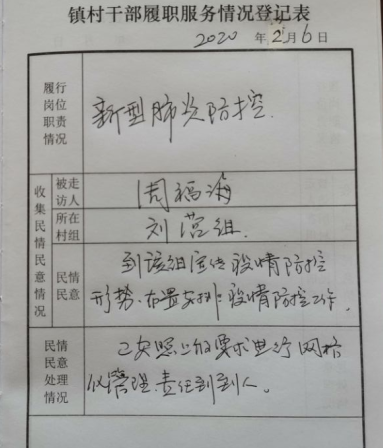 镇村干部履职服务情况登记表
2020 年 2 月 6 日
履行
岗位
职责
情况
新型肺炎防控.
收集民情民意情况
被走
访人
周福海
所在
村组
刘营组.
民情
民意
到该组宣传疫情防控
形势、布置安排疫情防控工作.
民情
民意
处理
情况
已安照上级要求进行网格
化管理,责任到到人。